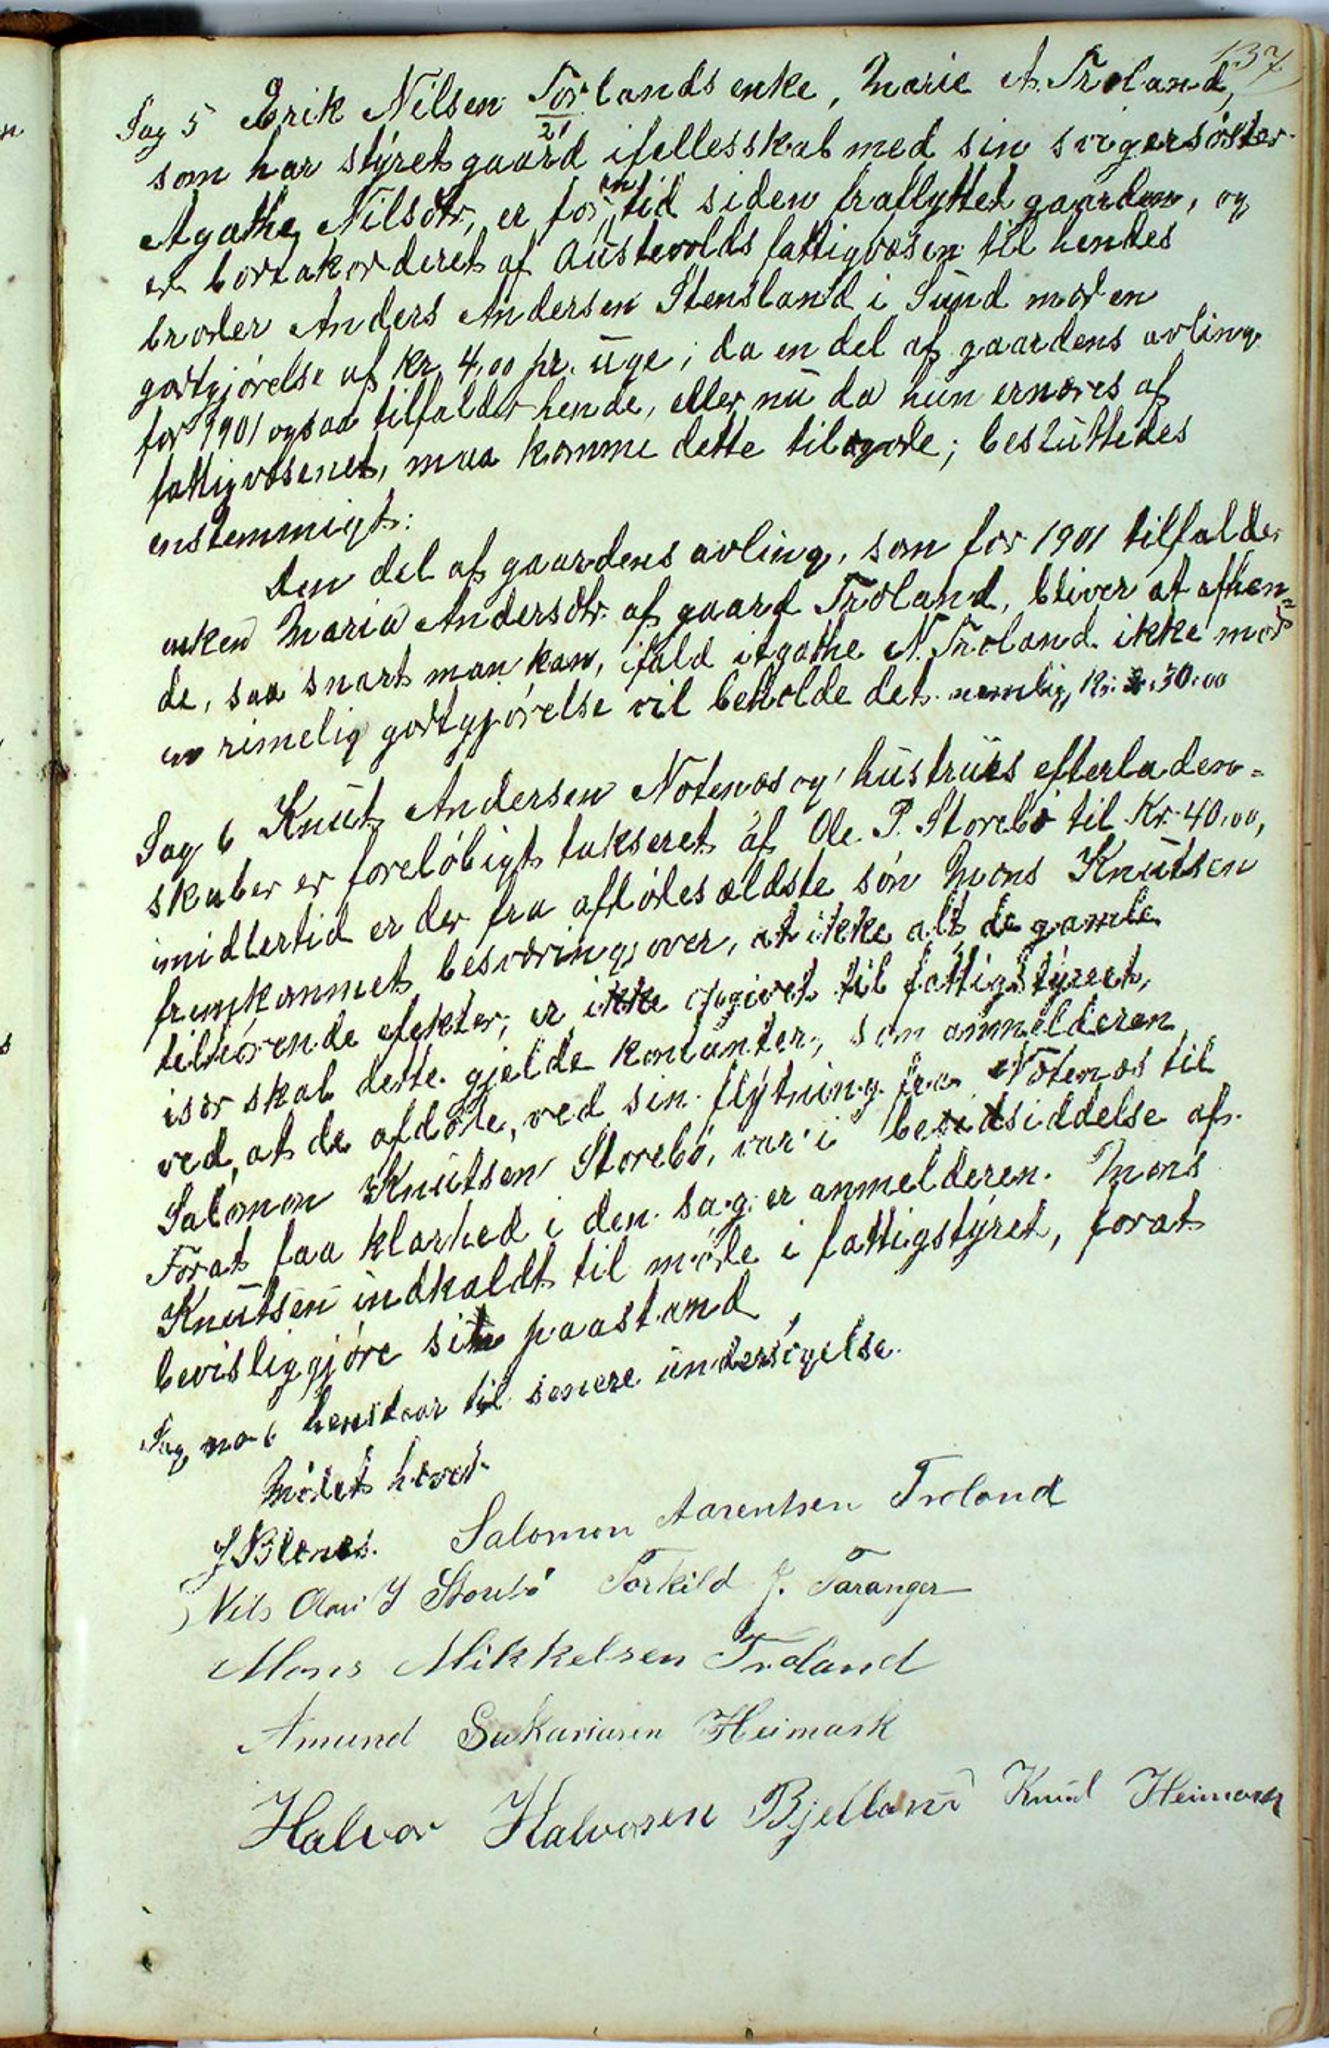 137
Sag 5 Erik Nilsen Torlands enke, Marie A. Troland,
21
som har styret gaard ifellesskab med sin svigersøster
Agathe Nilsdtr, er for en tid siden fraflyttet gaarden, og
er bortakorderet af Austevolds fattigvæsen til hendes
broder Anders Andersen Stensland i Sund mod en
godtgjørelse af kr. 4,00 pr. uge; da en del af gaardens avling
for 1901 ogsaa tilfalder hende, eller nu da hun ernæres af
fattigvæsenet, maa komme dette tilgode; besluttedes
enstemmigt:
Den del af gaardens avling, som for 1901 tilfalder
enken Maria Andersdtr. af gaard Troland, bliver at afhen=
de, saa snart man kan, ifald Agathe N. Troland ikke mod
en rimelig godtgjørelse vil beholde det nemlig, Kr. 30.00
Sag 6 Knut Andersen Notenæs og hustrues efterladen=
skaber er foreløbigt takseret af Ole P. Storebø til Kr. 40,00,
imidlertid er der fra afdødes ældste søn Mons Knutsen
fremkommet besværing over, at ikke alt de gamle
tilhørende efekter, er ikke opgivet til fattigstyret,
især skal dette gjelde kontanter, som anmelderen
ved, at de afdøde, ved sin flytning fra Notenæs til
Salomon Knutsen Storebø, var i besidsiddelse af.
Forat faa klarhed i den sag er anmelderen Mons
Knutsen indkaldt til møde i fattigstyret, forat
bevisliggjøre sin paastand
Sag no 6 henstaar til senere undersøgelse.
Mødet hævet
J Blenes. Salomon Aarentsen Troland
Nils Olai J Storebø Torkild J. Taranger
Mons Mikkelsen Troland
Amund Sakariasen Heimark
Halvor Halvorsen Bjelland Knud Heimark